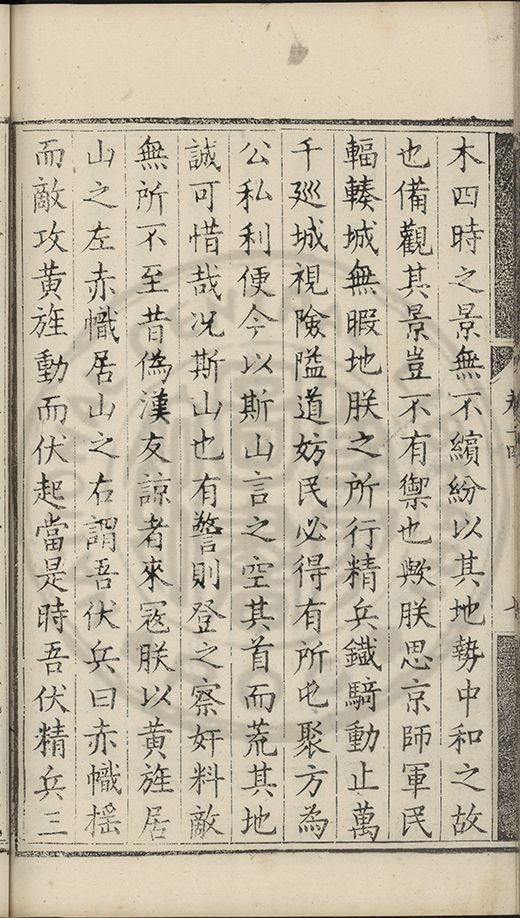 木四時之景無不繽紛以其地勢中和之故
也備觀其景豈不有禦也歟朕思京師軍民
輻輳城無暇地朕之所行精兵鐵騎動止萬
千廵城視險隘道妨民必得有所屯聚方為
公私利便今以斯山言之空其首而荒其地
誠可惜哉况斯山也有警則登之察奸料敵
無所不至昔偽漢友諒者來寇朕以黃旌居
山之左赤幟居山之右謂吾伏兵曰赤幟揺
而敵攻黃旌動而伏起當是時吾伏精兵三